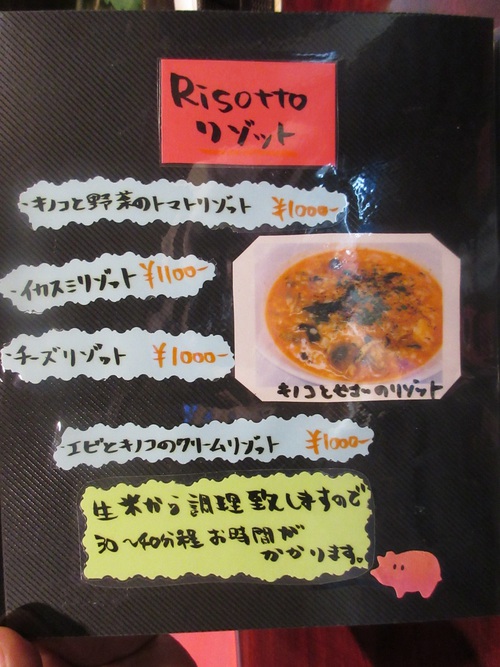 Risotto
リゾット
-キノコと野菜のトマトリゾット ¥1000-
-イカスミリゾット ¥1100-
-チーズリゾット ¥1000-
キノコとやさーのリゾット
-エビとキノコのクリームリゾット ¥1000-
生米から調理致しますので
30～40分程お時間が
かかります。